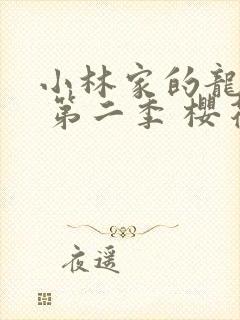 小林家的龍
第二季 櫻
夜遥